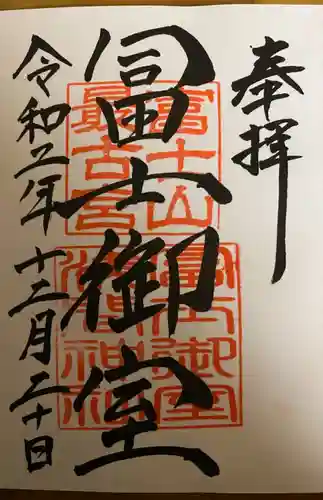 奉拝
富士山
最古宮
冨士御室
富士御室
浅間神社
令和五年十二月二十日